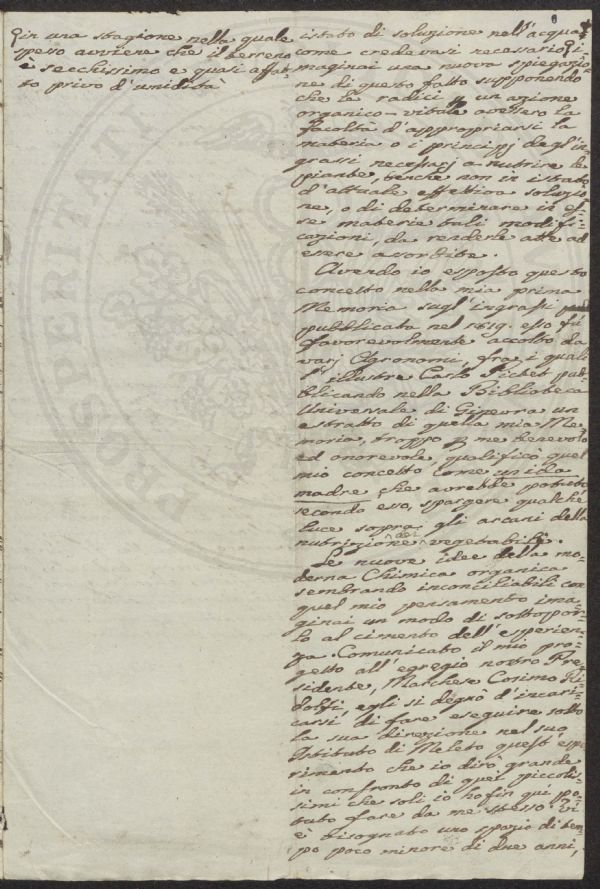 in una stagione nella quale
spesso avviene che il terreno
è secchissimo e quasi affat-
to privo d'umidità
istato di soluzione nell'acqua
come credevasi necessario, i-
maginai una nuova spiegazio-
ne di questo fatto supponendo
che le radici p un azione
organico-vitale avessero la
facoltà d'appropriarsi la
materia o i principj degl'in-
grassi necessarj a nutrire le
piante, benche non in istato
d'attuale effettiva soluzio-
ne, o di determinare in es-
se materie tali modifi-
cazioni, da renderle atte ad
essere assorbite.
Avendo io esposto questo
concetto nella mia prima
Memoria sugl'ingrassi
pubblicata nel 1819. esso fù
favorevolmente accolto da
varj Agronomi, fra i quali
l'illustre Carlo Pictet pub-
blicando nella Biblioteca
Universale di Ginevra un
estratto di quella mia Me-
moria, troppo p me benevolo
ed onorevole, qualificò quel
mio concetto come un idea
madre che avrebbe potuto
secondo esso, spargere qualche
luce sopra gli arcani della
nutrizione dei vegetabili.
Le nuove idee della mo-
derna Chimica organica
sembrando inconciliabili con
quel mio pensamento ima-
ginai un modo di sottopor-
lo al cimento dell'esperien-
za. Comunicato il mio pro-
getto all'egregio nostro Pre-
sidente, Marchese Cosimo Ri-
dolfi, egli si degnò d'incari-
carsi di fare eseguire sotto
la sua direzione nel suo
Istituto di Meleto quest'espe-
rimento che io dirò grande
in confronto di quei piccolis-
simi che soli io ho fin qui po-
tuto fare da me stesso. Vi
è bisognato uno spazio di tem-
po poco minore di due anni,
PROSPERITATI